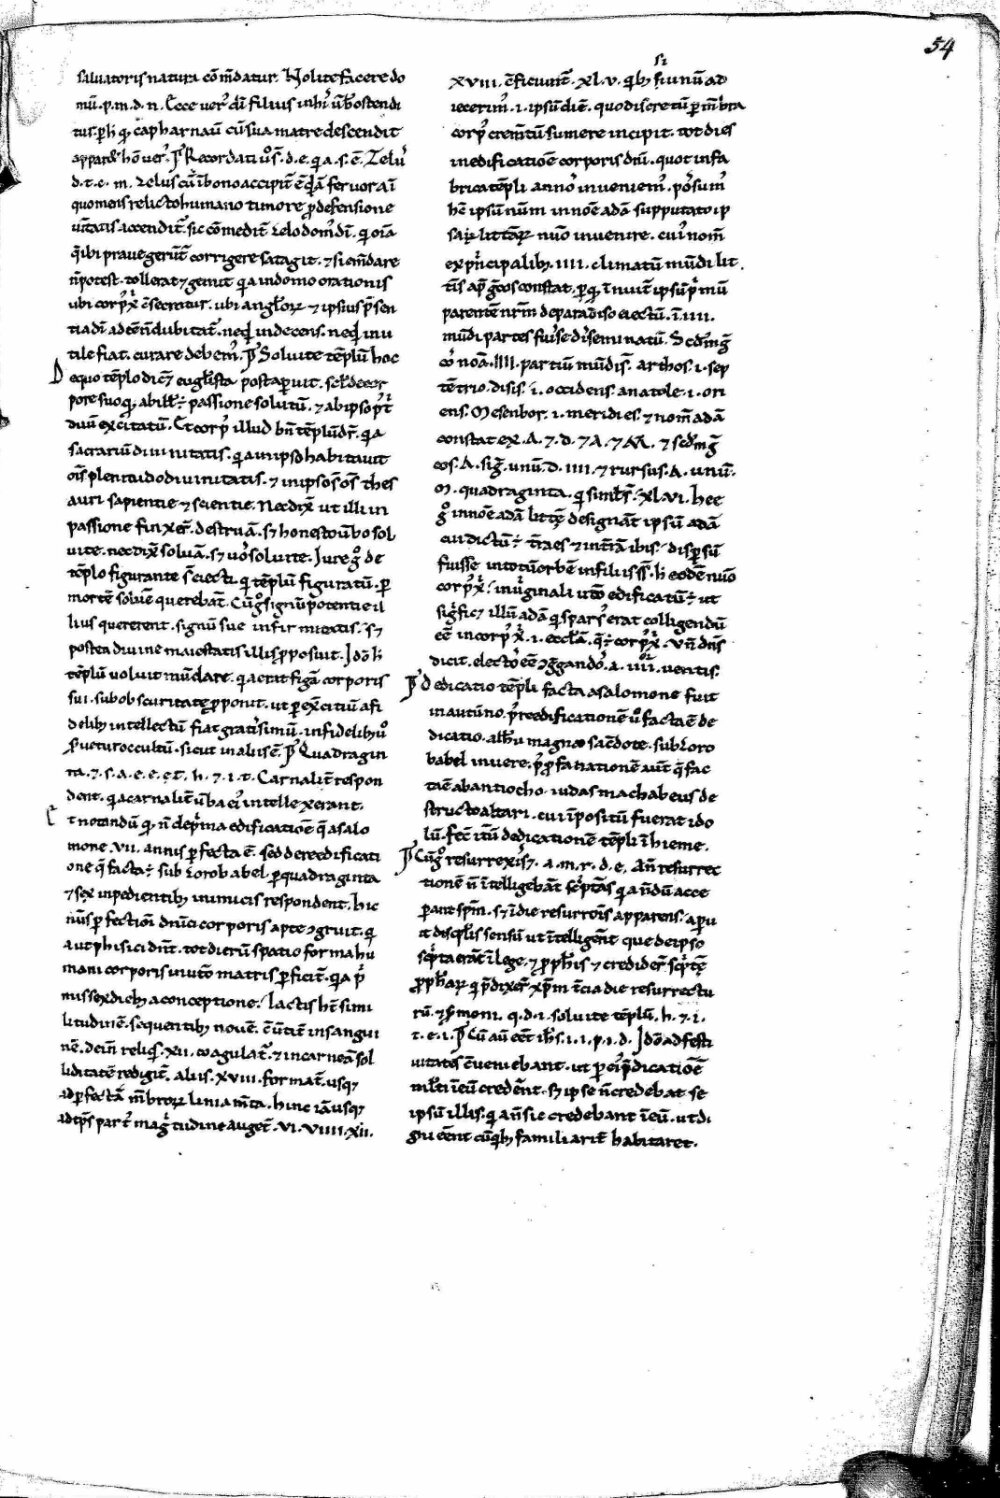 54
saluatoris natura cōm̄datur. Nolite facere do
mū. p. m. d. n. Ecce uer' dī filius in hi' ūbostendi
tur. p̱ h̄ q̇ capharnaū cū sua matre descendit
apparet hō uer'. ¶ Recordati u͛o s̄. d. e. q̇ a. s. ē. Zelus
d. t. c. m. zelus cū ī bono accipit̄ ē q̇dā feruor aī
quo mens relicto humano timore ꝓ defensione
uītatis accendit̄. sic cōmedit̄ zelo dom' dī. qͥ oīa
q̄ ibi praue gerūt̄ corrigere satagit. ⁊ si em̄dare
n̄ potest. tollerat ⁊ gemit q̇a in domo orationis
ubi corp' x̄ c̄secratur. ubi angl̄oꝝ ⁊ ipsius p̄sen
tia dī adēē n̄ dubitat̄. neq̇ indecens. neq̇ inu
tile fiat. curare debem'. ¶ Soluite tēplū hoc
De quo tēplo dic̄ ⁊ eugl̄ista post aperuit. scl̄ de cor
pore suo q, ab illis ÷ passione solutū. ⁊ ab ipso p' t̄
duū excitatū. Et corp' illud bn̄ tēplū dr̄. q̇a
sacrariū diuinitatis. q̇a in ipso habitauit
oīs plenitudo diuinitatis. ⁊ in ipso s̄ oīs thes
auri sapientie ⁊ scientie. Nec dix̄ ut illi in
passione finxer̄. destruā. s; honesto ūbo sol
uite. nec dix̄ soluā. s; uo' soluite. Iure g̊ de
tēplo figurante s̄ eiecti qͥ tēplū figuratū. p̱
mortē soluē querebāt. Cū g̊ signū potentie il
lius quererent. signū sue infirmitatis. s;
postea diuine maiestatis illis ꝓposuit. Idō h̄
tēplū uoluit mūdare. q̇a erat figā corporis
sui. sub obscuritate ꝓponit. ut p̱ exc̄itiū a fi
delibȝ intellectū fiat gratissimū. infidelibȝ u͛o
seruetur occultū. sicut in aliis ē. ¶ Quadragin
ta. ⁊. s. a. e. e. t. h. ⁊. i. t. Carnalit̄ respon
dent. q̇a carnalit̄ ūba ei' intellexerant.
Et notandū q̇. n̄ de p'ma edificatiōe q̄ a salo
mone. vii. annis p̱fecta ē. sed de reedificati
one q̄ facta ÷ sub zorobabel. p̱ quadraginta
⁊ sex inpedientibȝ inimicis respondent. hic
nūs p̱fectiōi dnīci corporis apte ꝯgruit. q̇
aut phisici dn̄t. tot dierū spatio forma hu
mani corporis in utō matris p̱ficit̄. q̇a p'
mis sex diebȝ a conceptione. lactis h̄t simi
litudinē. sequentibȝ nouē. c̄ūtit̄ in sangui
nē. dein reliq̇s. xii. coagulat̄. ⁊ in carneā sol
liditatē redigit̄. aliis. xviii. format̄. usq;
ad p̱fectā m̄broꝝ liniam̄ta. hinc iā usq;
ad tp̄s part' magͥtudine auget̄. vi. viiii. xii.
xviii. efficiunt̄. xl. v. qͥbȝ si unū ad
iecerim'. i. ipsū diē. quo discretū p̱ m̄bra
corp' crem̄tū sumere incipit. tot dies
in edificatiōe corporis dnī. quot in fa
brica tēpli anno' inueniem'. possum'
h̄c ipsū nūm in noīe adā supputato ip
saꝝ litt̄aꝝ nūo inuenire. cui' nom̄
ex p'ncipalibȝ. iiii. climatū mūdi lit
t̄is ap' g̊cos constat. p̱ q̇ īnuit̄ ipsū p'mū
parentē nr̄m de paradiso eiectū. ī. iiii.
mūdi partes fuisse dis̄eminatū. Scdm̄ g̊
co' noīa. iiii. partiū mūdi s̄. arthos. i. sep
tētrio. disis. i. occidens. anatole. i. ori
ens. Mesenbor. i. meridies. ⁊ nom̄ adā
constat ex. A. ⁊. D. ⁊ A. ⁊ M. ⁊ scdm̄ g̊
cos. A. sig̊. unū. D. iiii. ⁊ rursus. A. unū.
M. quadraginta. q̇ simul s̄. xl. vi. hec
g̊ in noīe adā litt̄e designāt ipsū adā
cui dictū ÷ tr̄a es ⁊ in tr̄ā ibis. disp̱sū
fuisse in totū orbē in filiis s̄. h̄ eodē nūo
corp' x̄. in uirginali utō edificatū ÷ ut
sigͥfic; illū adā q̇ spars' erat colligendū
ēē in corp' x̄. i. eccl̄ā. q̄ ÷ corp' x̄. Vn̄ dn̄s
dicit. electo' ēē ꝯg̊gando'. a. iiii. uentis.
¶ Dedicatio tēpli facta a salomone fuit
in autūno. p' reedificationē u͛o facta ē de
dicatio. ab h̄u magno sacdote. sub zoro
babel in uere. p' ꝓfanationē aūt q̄ fac
ta ē ab antiocho. iudas machabeus de
structo altari. cui īpositū fuerat ido
lū. fec̄ itū dedicationē tēpli ī hieme.
¶ Cū g̊ resurrexiss;. a. m. r. d. e. An̄ resurrec
tionē n̄ ītelligebāt sc'ptas q̇a n̄dū acce
perant sp̄m. s; ī die resurrōis apparens. aperu
it discipl̄is sensū ut ītelligēt que de ipso
sc'pta erāt ī lege. ⁊ ꝓph̄is ⁊ credider̄ sc'pt̄e
ꝓph̄aꝝ q̇ p'dixer̄ xp̄m t̄cia die resurrectu
rū. ⁊ s̄moni. q. d. i. soluite tēplū. h. ⁊. i.
t. e. i. ¶ Cū aū eēt ih̄s. i. i. p. i. d. Idō ad festi
uitates c̄ueniebant. ut p̱ ei' p'dicatiōē
ml̄ti ī eū cred̄ent. S; ipse n̄ credebat se
ipsū illis. q̇a n̄ sic credebant ī eū. ut di
gni eēnt cū qͥbȝ familiarit̄ habitaret.